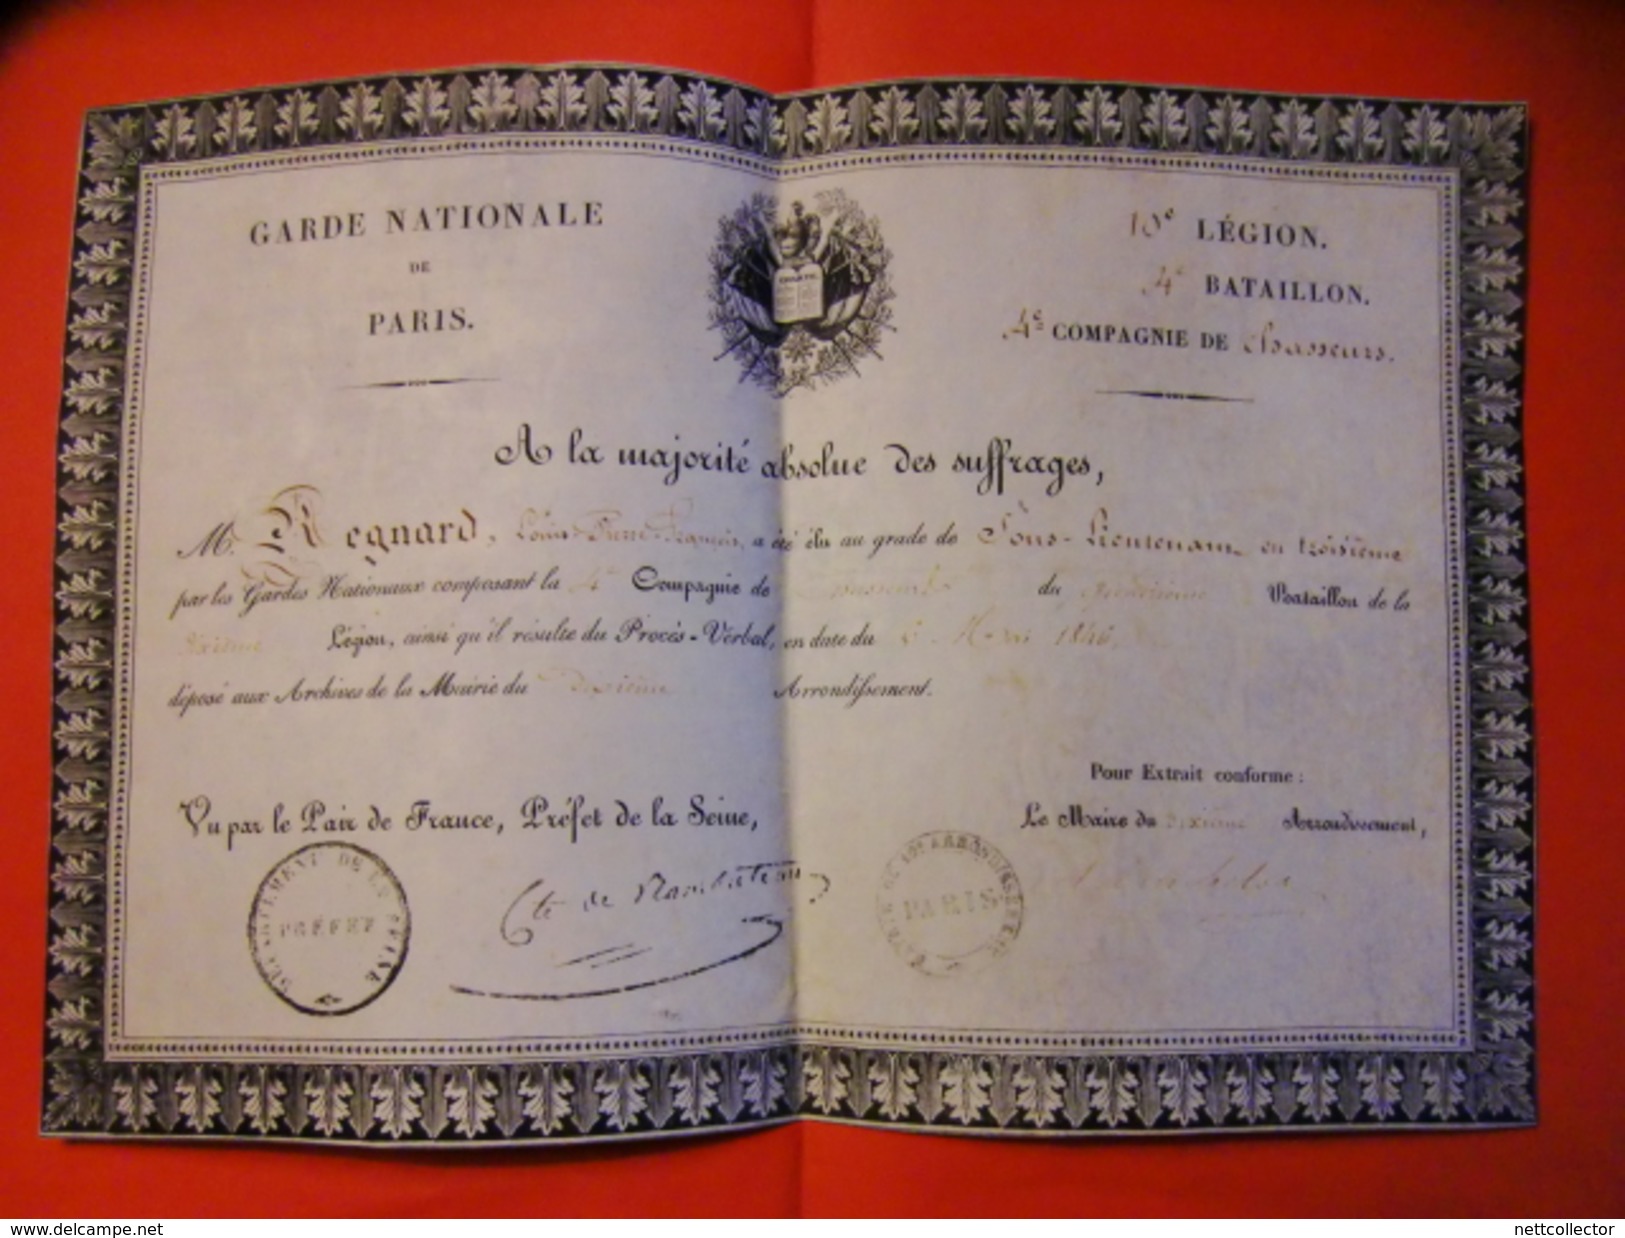 GARDE NATIONALE
DE
PARIS.
10e LÉGION.
4e BATAILLON.
4e COMPAGNIE DE Chasseurs.
A la majorité absolue des suffrages,
M. Regnard, Louis-Pierre-François, a été élu au grade de Sous-Lieutenant en troisième
par les Gardes Nationaux composant la 4e Compagnie de Chasseurs du quatrième Bataillon de la
dixième Légion, ainsi qu'il résulte du Procès-Verbal, en date du 6 Mai 1846,
déposé aux Archives de la Mairie du Dixième Arrondissement.
Pour Extrait conforme :
Vu par le Pair de France, Préfet de la Seine,
Le Maire du dixième Arrondissement,
DÉPARTEMENT DE LA SEINE
PRÉFET
Cte de Rambuteau
MAIRIE DU 10e ARRONDISSEMENT
PARIS
www.delcampe.net
nettcollector